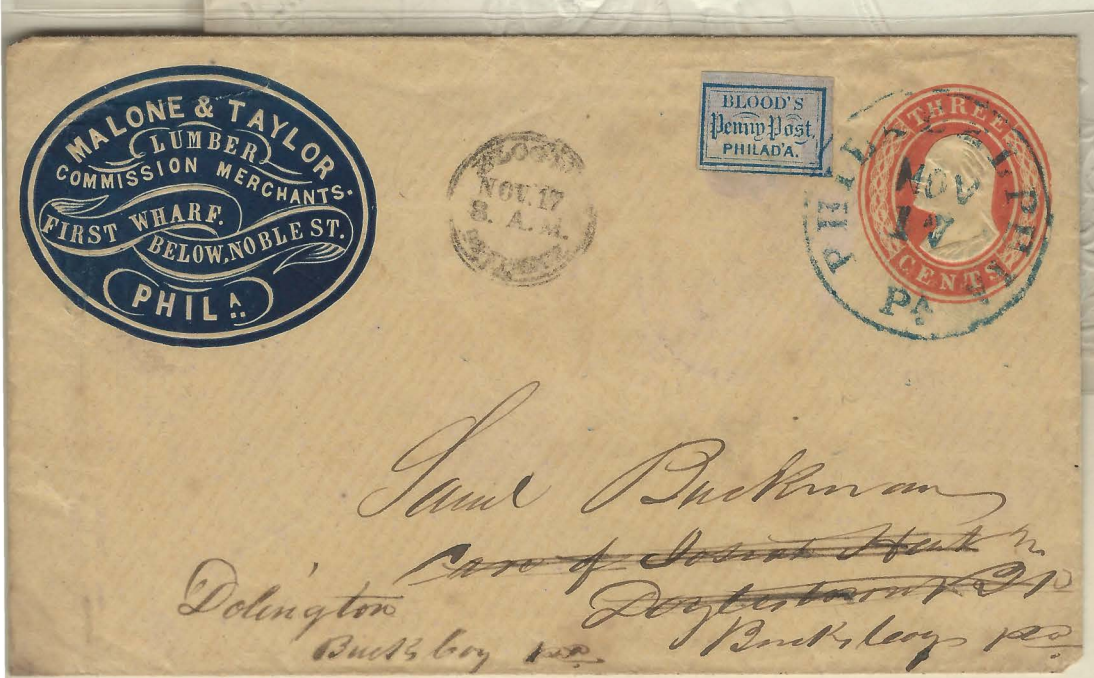 MALONE & TAYLOR
LUMBER
COMMISSION MERCHANTS.
FIRST WHARF.
BELOW, NOBLE ST.
PHILA.
NOV. 17
8. A. M.
BLOOD'S
Penny Post,
PHILAD'A.
THREE
CENTS
PHILADELPHIA
NOV
17
PA
Saml Buckman
Care of Josiah
Doylestown
Bucks Coy pa
Dolington
Bucks Coy pa